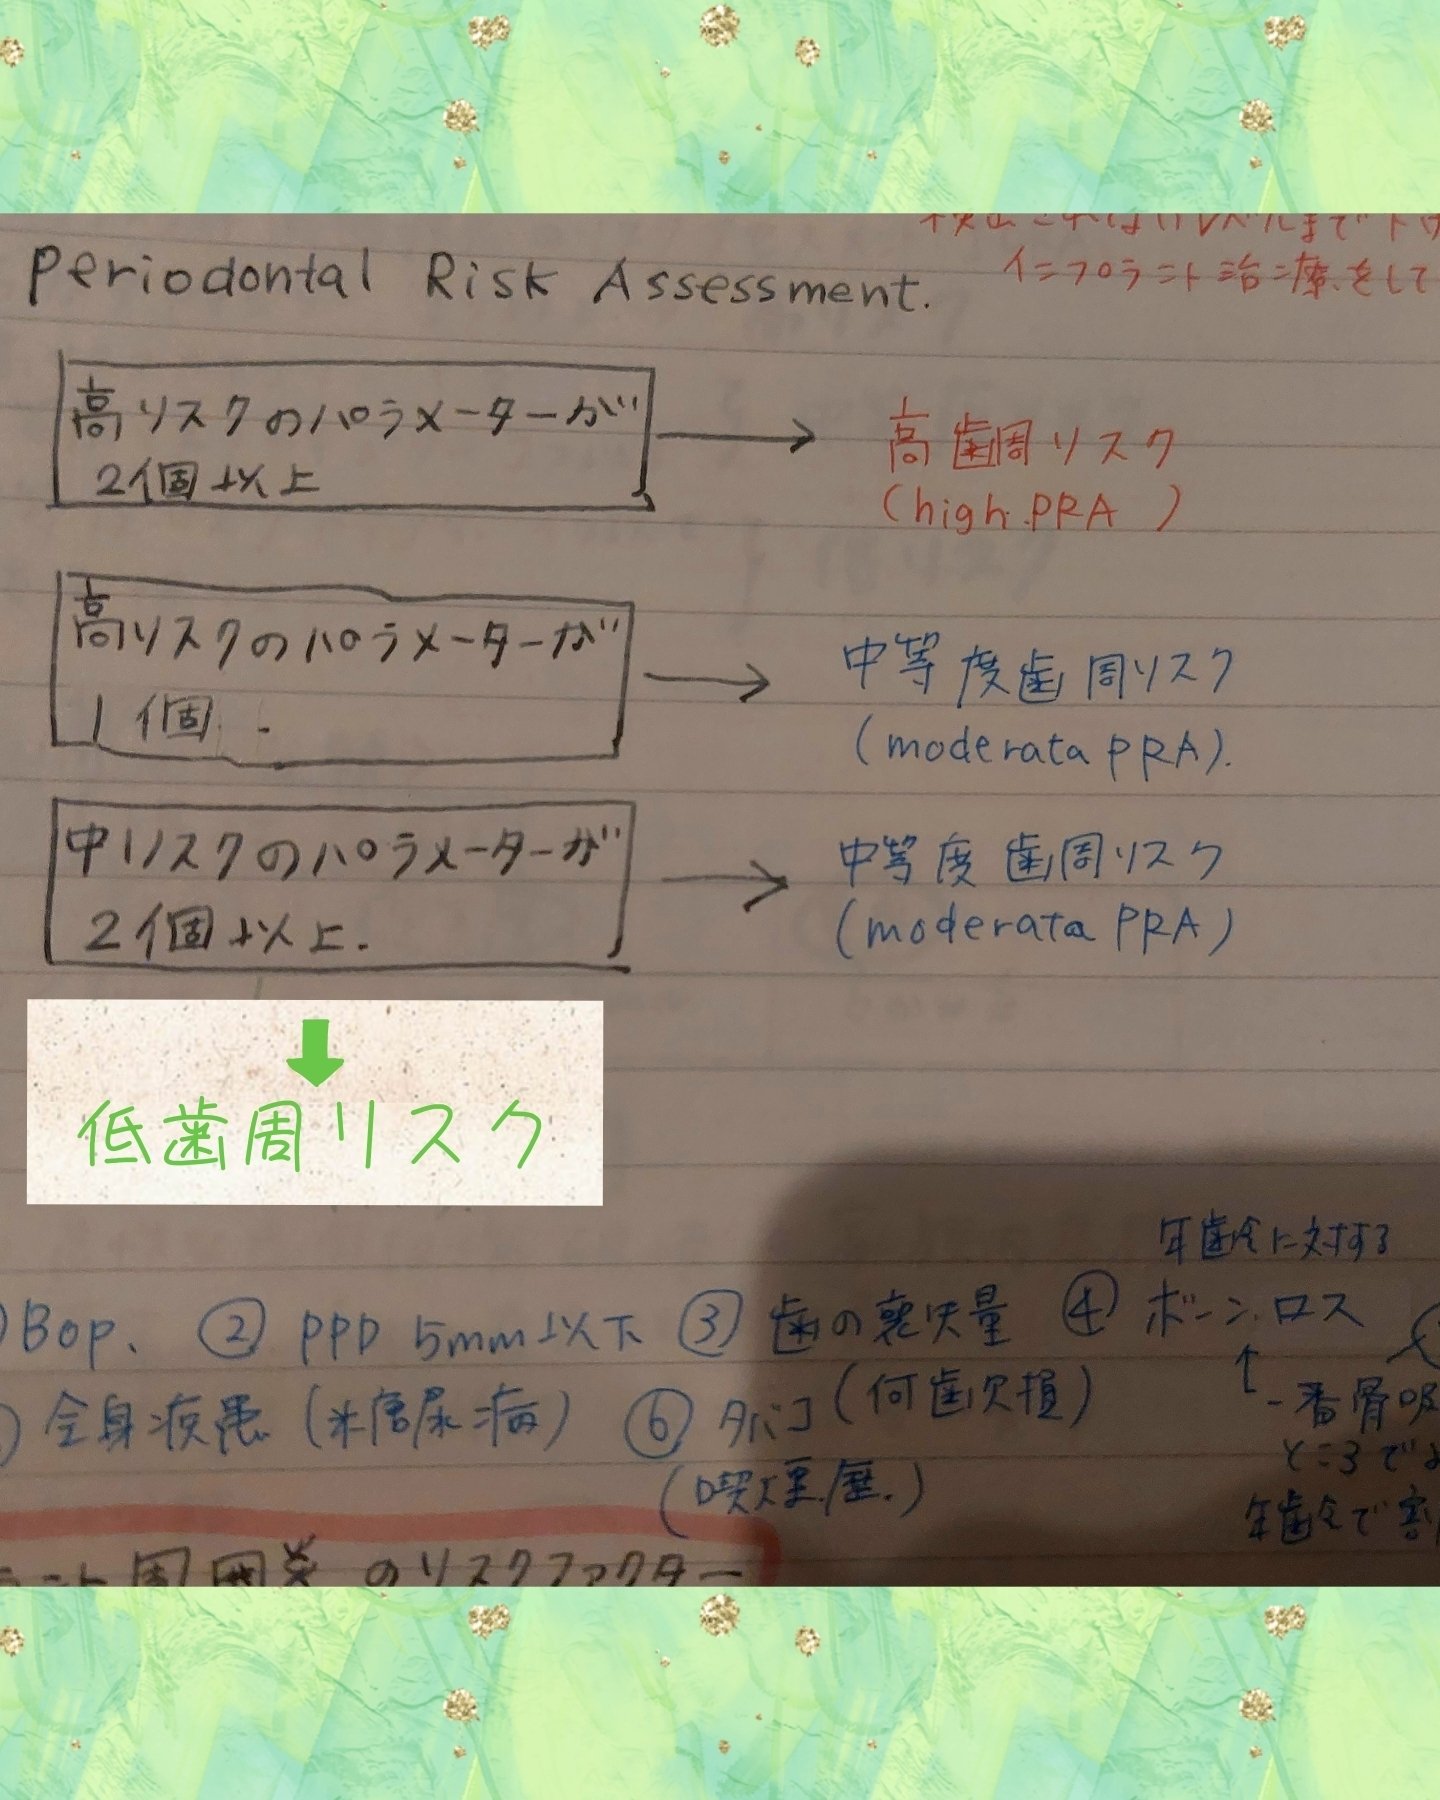 インプラント治療をして
Periodontal Risk Assessment.
高リスクのパラメーターが
2個以上
高歯周リスク
(high PRA )
高リスクのパラメーターが
1個
中等度歯周リスク
(moderata PRA).
中リスクのパラメーターが
2個以上.
中等度歯周リスク
(moderata PRA)
低歯周リスク
年齢に対する
Bop、 ② PPD 5mm以下 ③ 歯の喪失量 ④ ボーンロス
全身疾患 (糖尿病) ⑥ タバコ (何歯欠損)
一番骨吸
ところで
(喫煙歴.)
年齢で割
ント周囲炎のリスクファクター